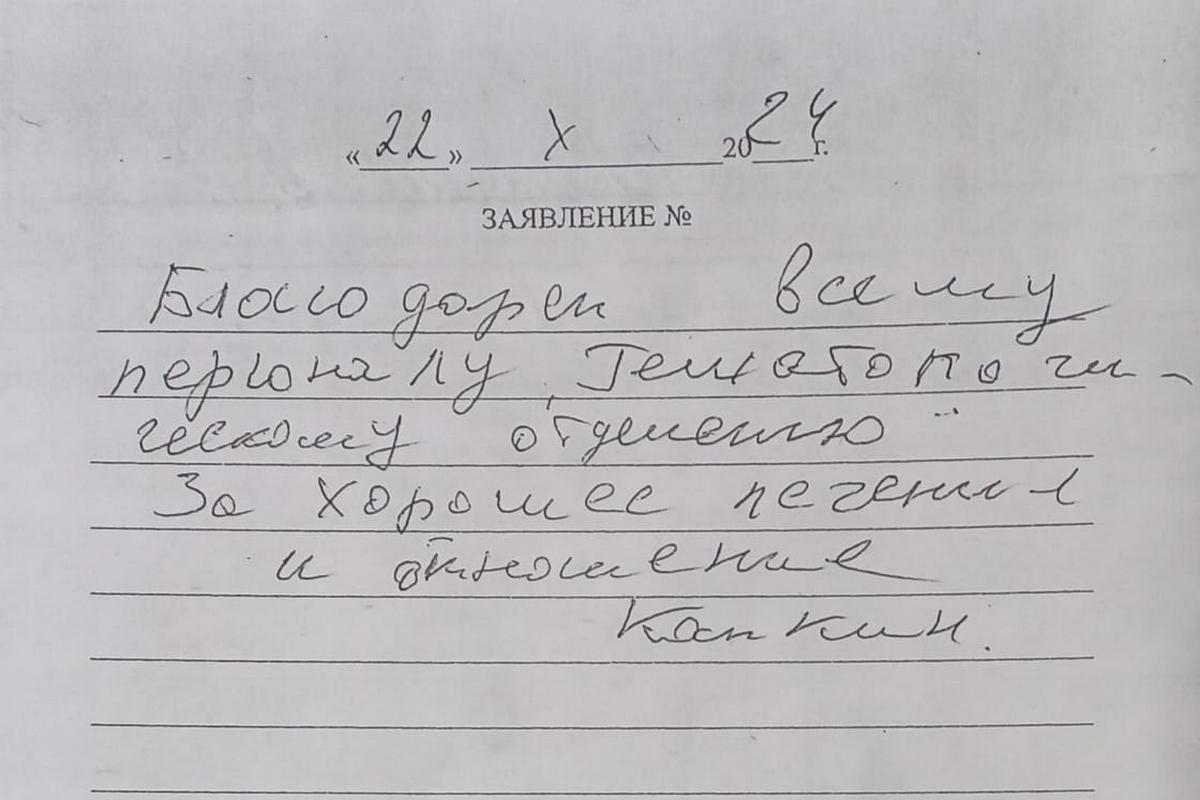 «22» X 2024 г.
ЗАЯВЛЕНИЕ №
Благодарен всему
персоналу, Гематологи-
ческому отделению
За хорошее лечение
и отношение